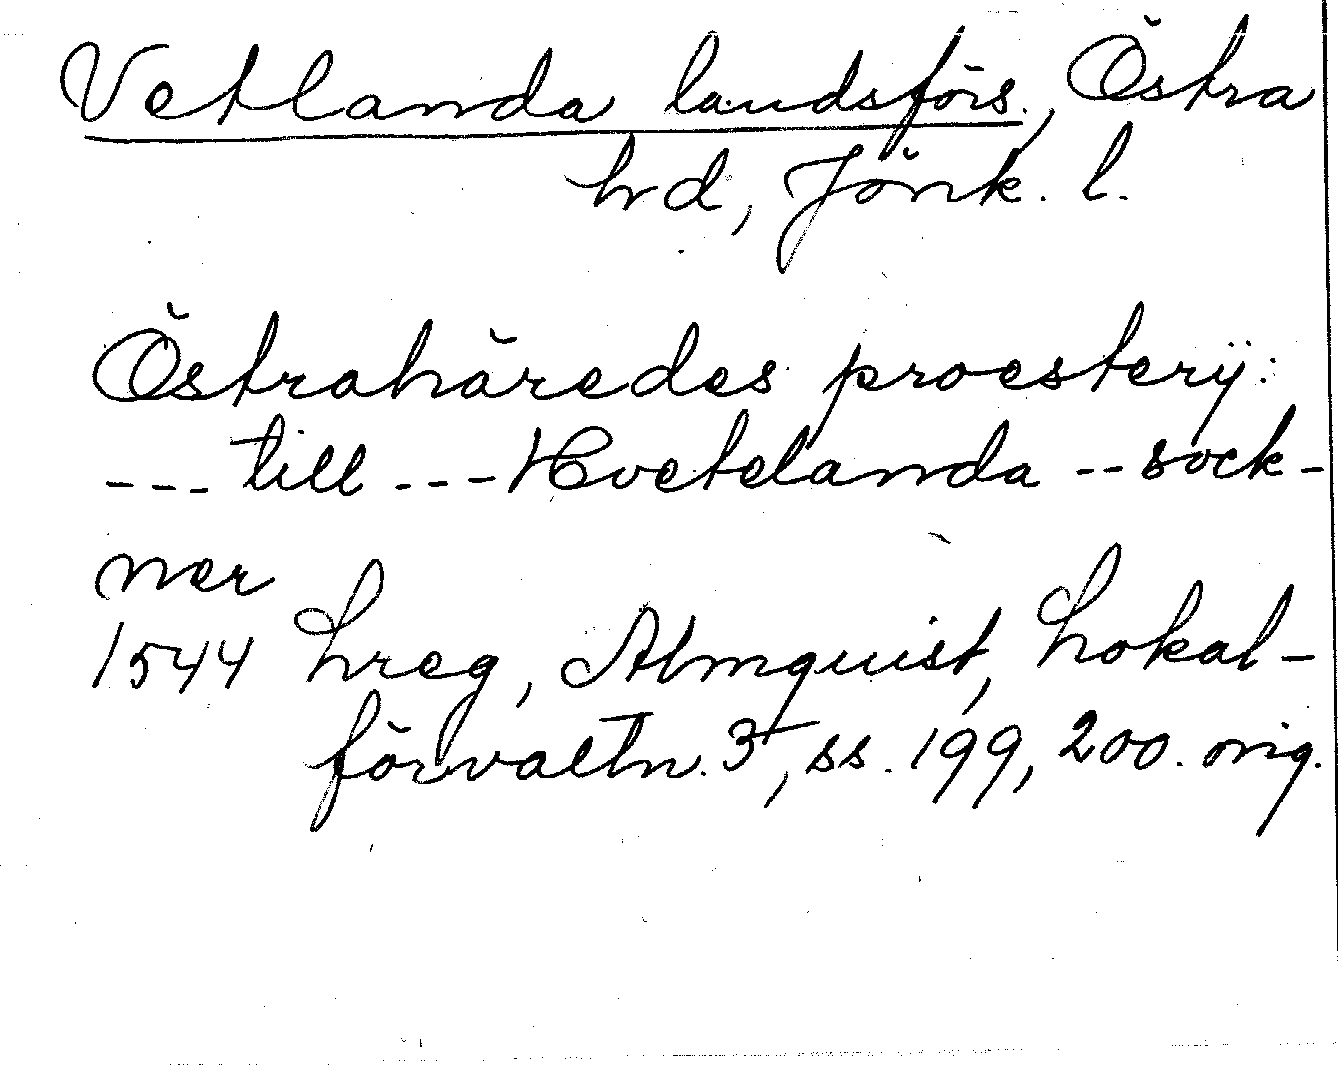 Vetlanda landsförs., Östra
hrd, Jönk. l.
Östrahäredes proestery:
--- till --- Hvetelanda -- sock-
ner
1544 Lreg, Almquist, Lokal-
förvaltn. 3, ss. 199, 200. orig.